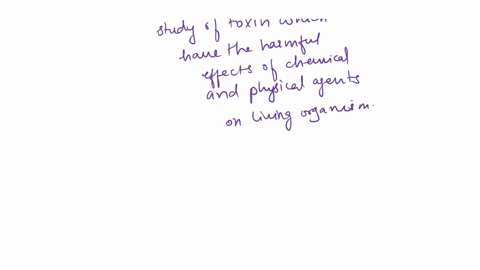 study of toxin which
have the harmful
effects of chemical
and physical agents
on living organism.